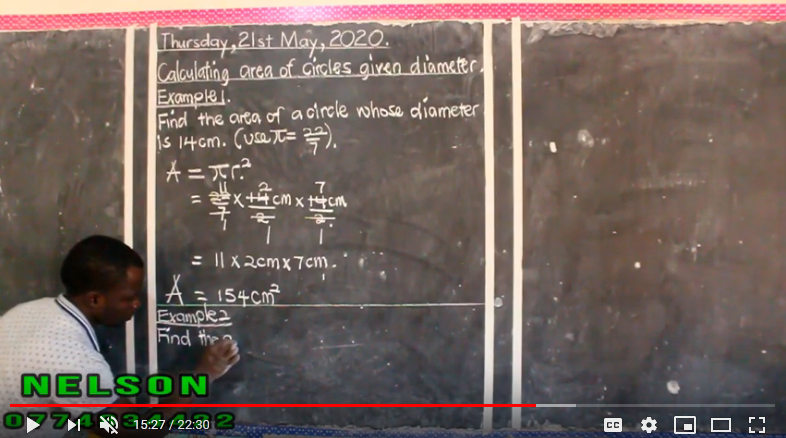 Thursday, 21st May, 2020.
Calculating area of circles given diameter.
Example 1.
Find the area of a circle whose diameter
is 14cm. (use π = 22/7).
A = πr²
11 2 7
= 22/7 × 14/2 cm × 14/2 cm
1 1 1
= 11 × 2cm × 7cm.
A = 154cm²
Example 2
Find the
NELSON
15:27 / 22:30
CC